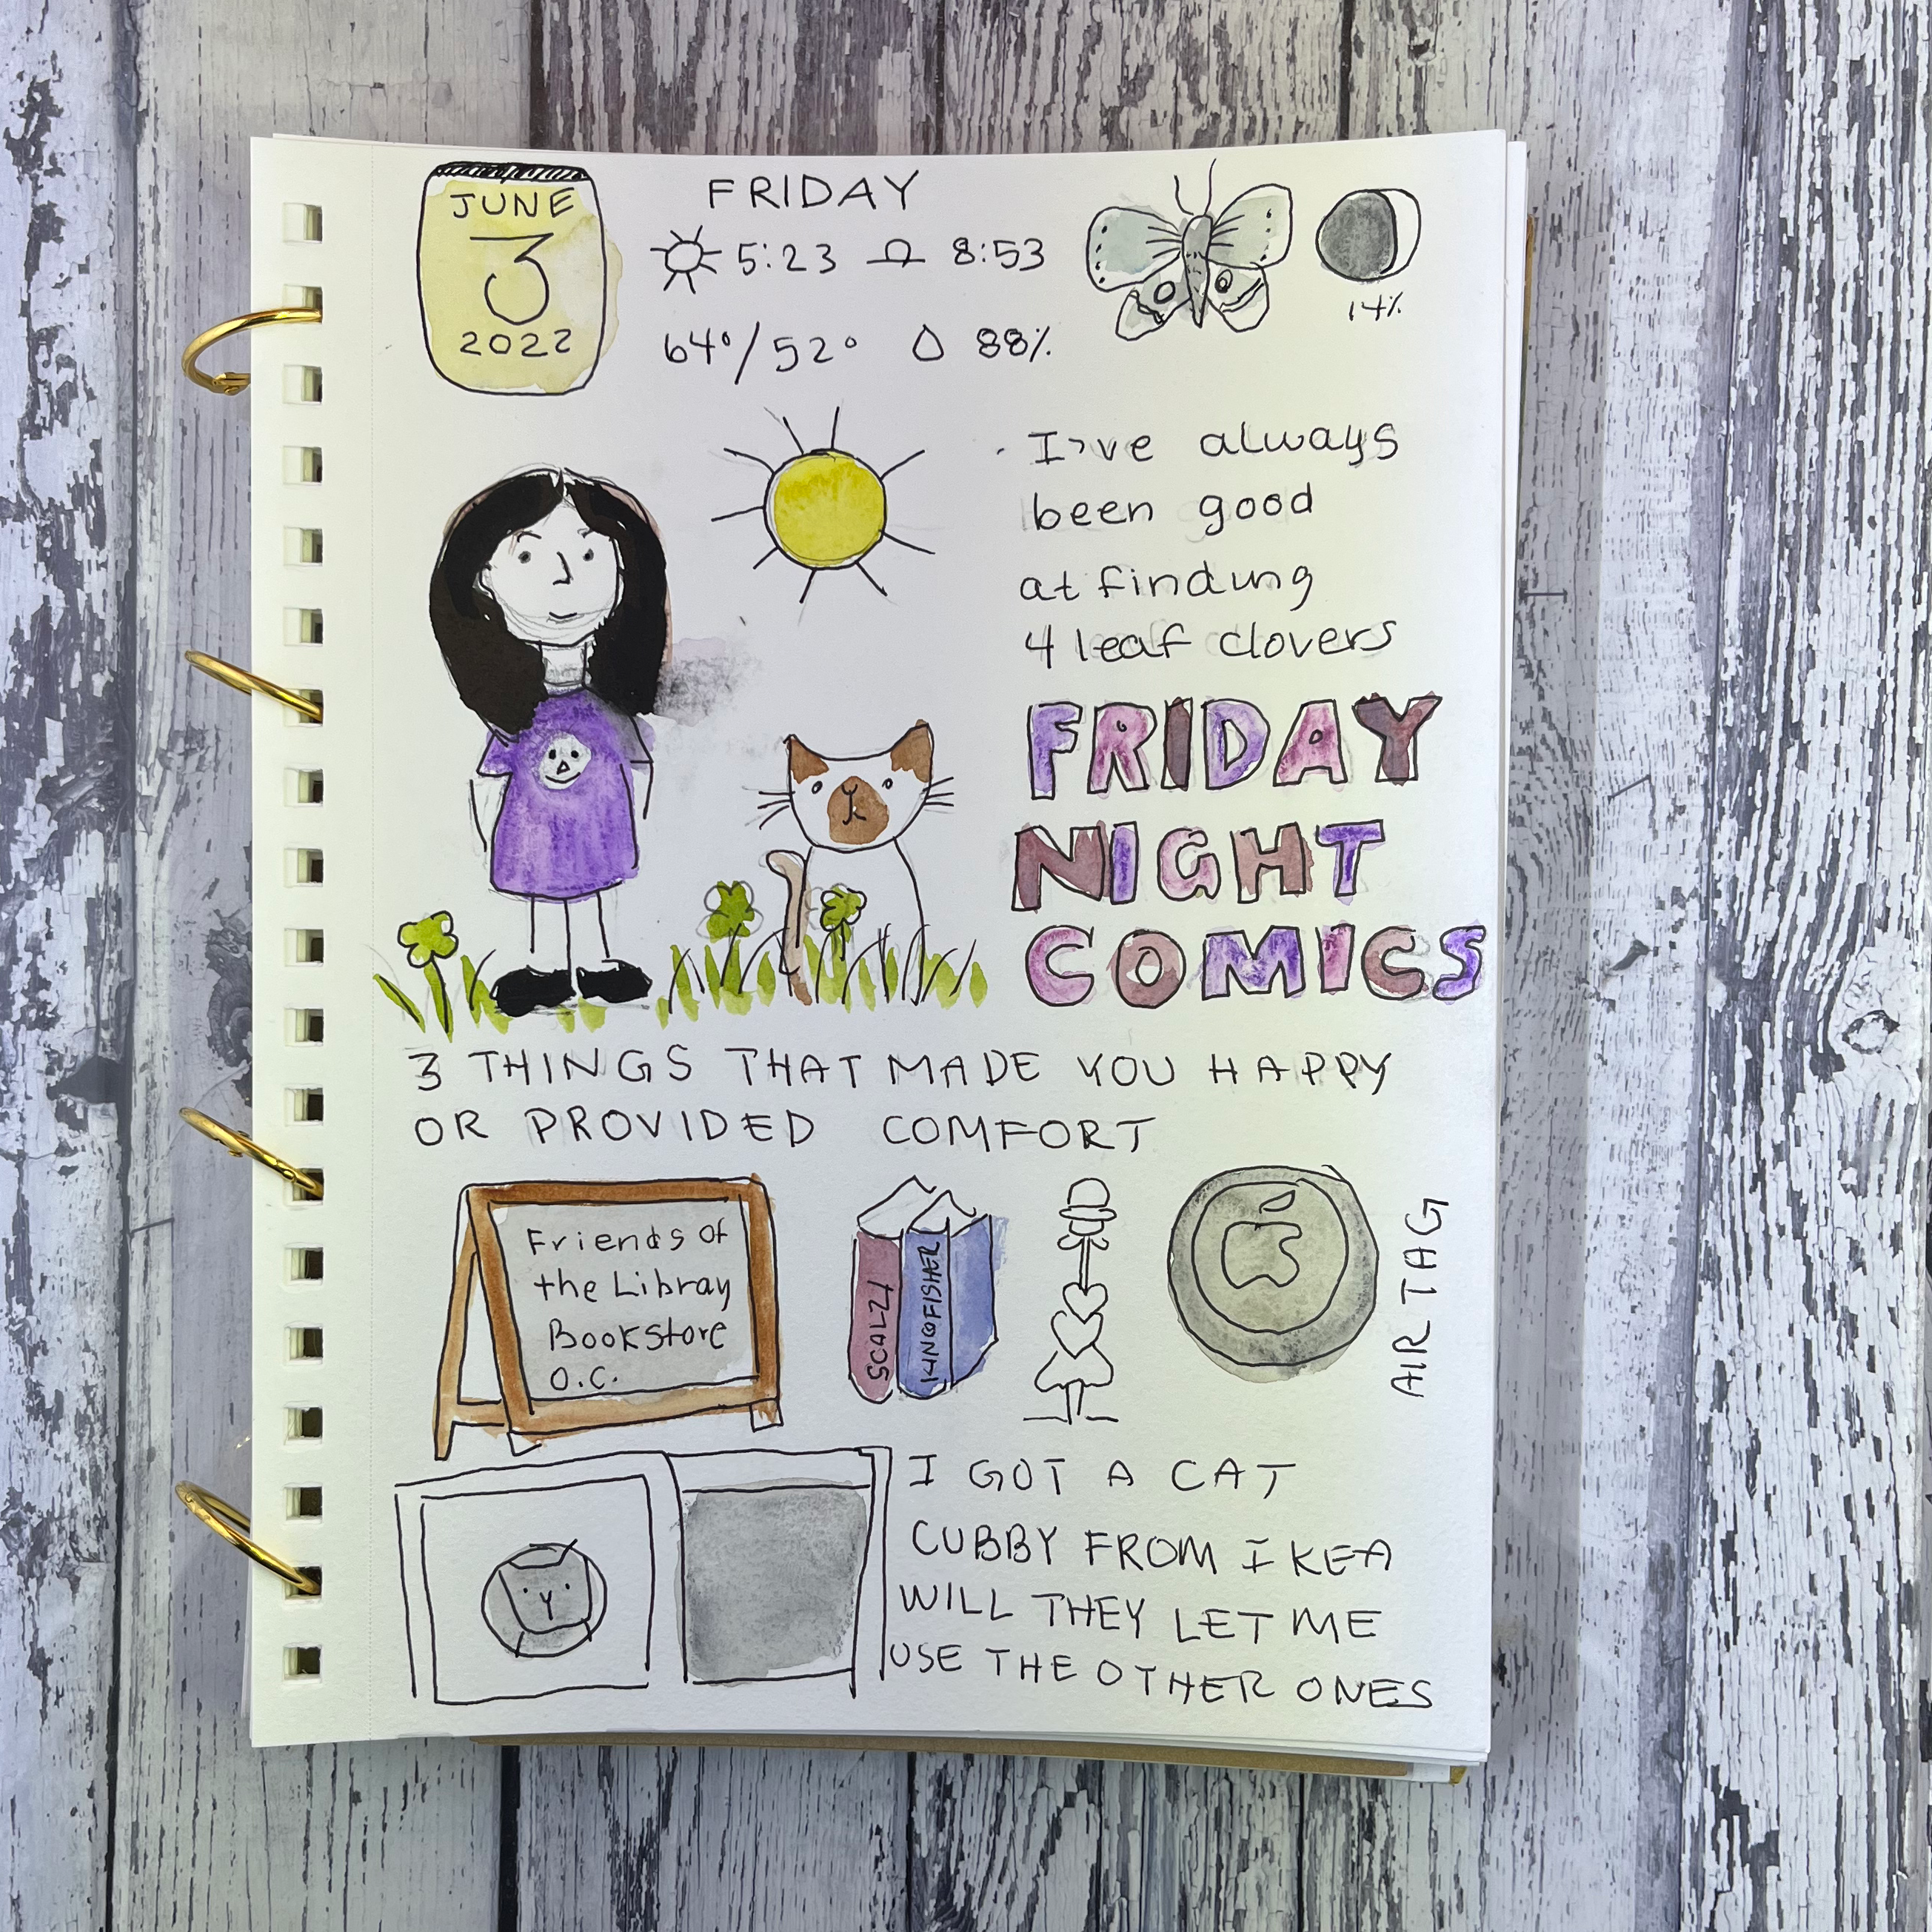 JUNE
3
2022
FRIDAY
5:23 8:53
64°/52° 88%
14%
I've always
been good
at finding
4 leaf clovers
FRIDAY
NIGHT
COMICS
3 THINGS THAT MADE YOU HAPPY
OR PROVIDED COMFORT
Friends of
the Libray
Bookstore
O.C.
SCALZI
KINGFISHER
AIR TAG
I GOT A CAT
CUBBY FROM IKEA
WILL THEY LET ME
USE THE OTHER ONES